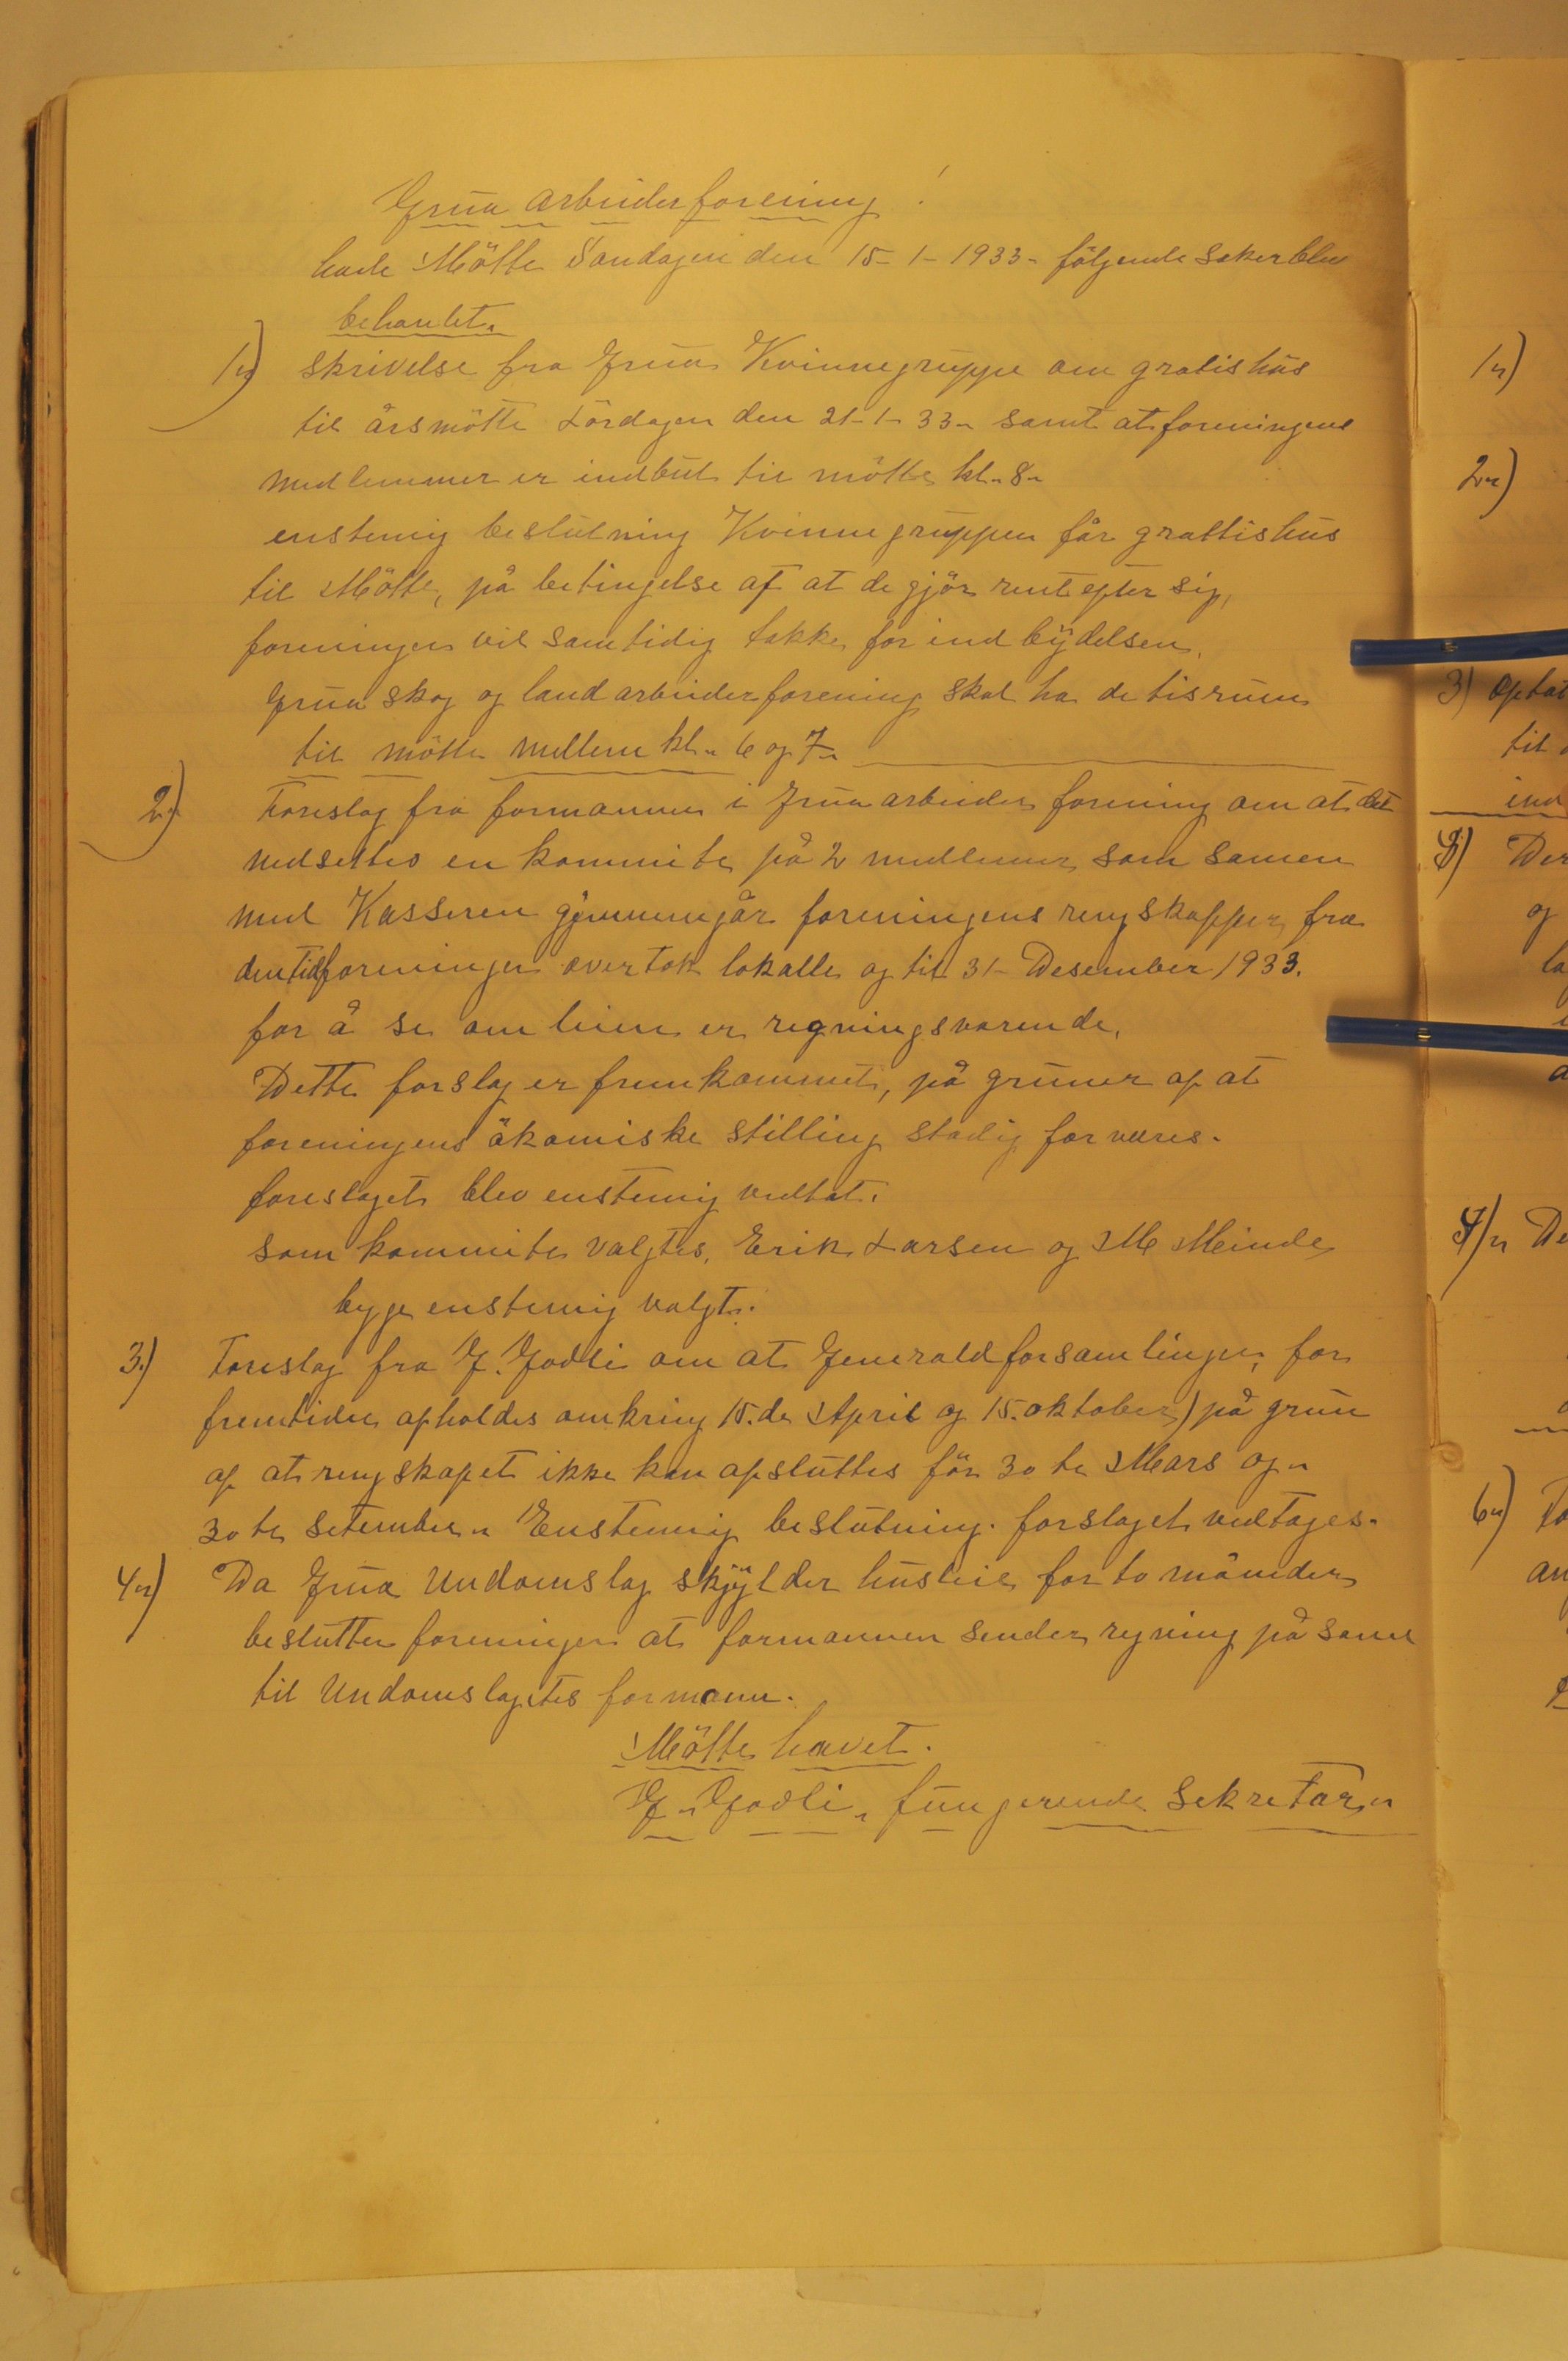 Grua arbeiderforening!
havde Mötte Söndagen den 15-1-1933- fölgende saker blev
behandlet.
1) skrivelse fra Grua Kvinnegruppe om gratishus
til årsmötte Lördagen den 21-1-33- samt at foreningens
medlemmer er indbut til mötte kl. 8-
enstemig beslutning Kvinnegruppen får grattishus
til Mötte, på betingelse af at de gjör rent efter sig,
foreningen vil samtidig takke for indbydelsen.
Grua skog og landarbeiderforening skal ha det lisrum
til mötte mellem kl. 6 og 7-
2) Foreslag fra formannen i Grua arbeider forening om at det
nedsettes en kommite på 2 medlemmer som samen
med Kasseren gjennemgår foreningens rengskapper, fra
den tid foreningen overtok lokalle og til 31- Desember 1933.
for å se om leien er regningsvarende,
Dette forslag er fremkommet, på gruner af at
foreningens ökomiske stilling stadig forveres.
foreslaget blev enstemig vedtat.
som kommite valgtes, Erik Larsen og M Meinde
begge enstemig valgt.
3.) Foreslag fra G. Godli om at Generaldforsamlingen, for
fremtiden afholdes omkring 15.de April og 15. oktober) på grun
af at rengskapet ikke kan afsluttes för 30te Mars og
30te setember. Enstemig beslutning. forslaget vedtages.
4) Da Grua Undomslag skjylder husleie for to måneder
beslutter foreningen at formannen sender regning på same
til Undomslagetes formann.
Mötte havet.
G. Godli. fungerende sekretær
1)
2)
3) Optat
til
inn
4) Der
og
la
De
6)
an